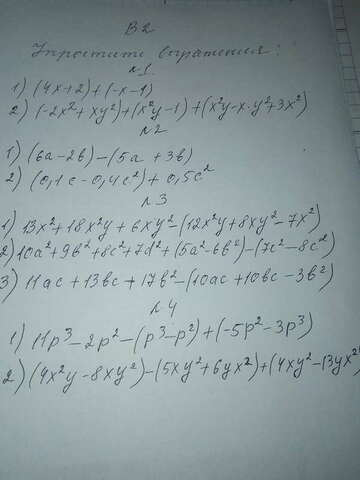 В2
Упростите выражения:
№1
1) (4x+2)+(-x-1)
2) (-2x²+xy²)+(x²y-1)+(x²y-x·y²+3x²)
№2
1) (6a-2b)-(5a+3b)
2) (0,1c-0,4c²)+0,5c²
№3
1) 13x²+18x²y+6xy²-(12x²y+8xy²-7x²)
2) 10a²+9b²+8c²+7d²+(5a²-6b²)-(7c²-8c²)
3) 11ac+13bc+17b²-(10ac+10bc-3b²)
№4
1) 11p³-2p²-(p³-p²)+(-5p²-3p³)
2) (4x²y-8xy²)-(5xy²+6yx²)+(4xy²-13yx²